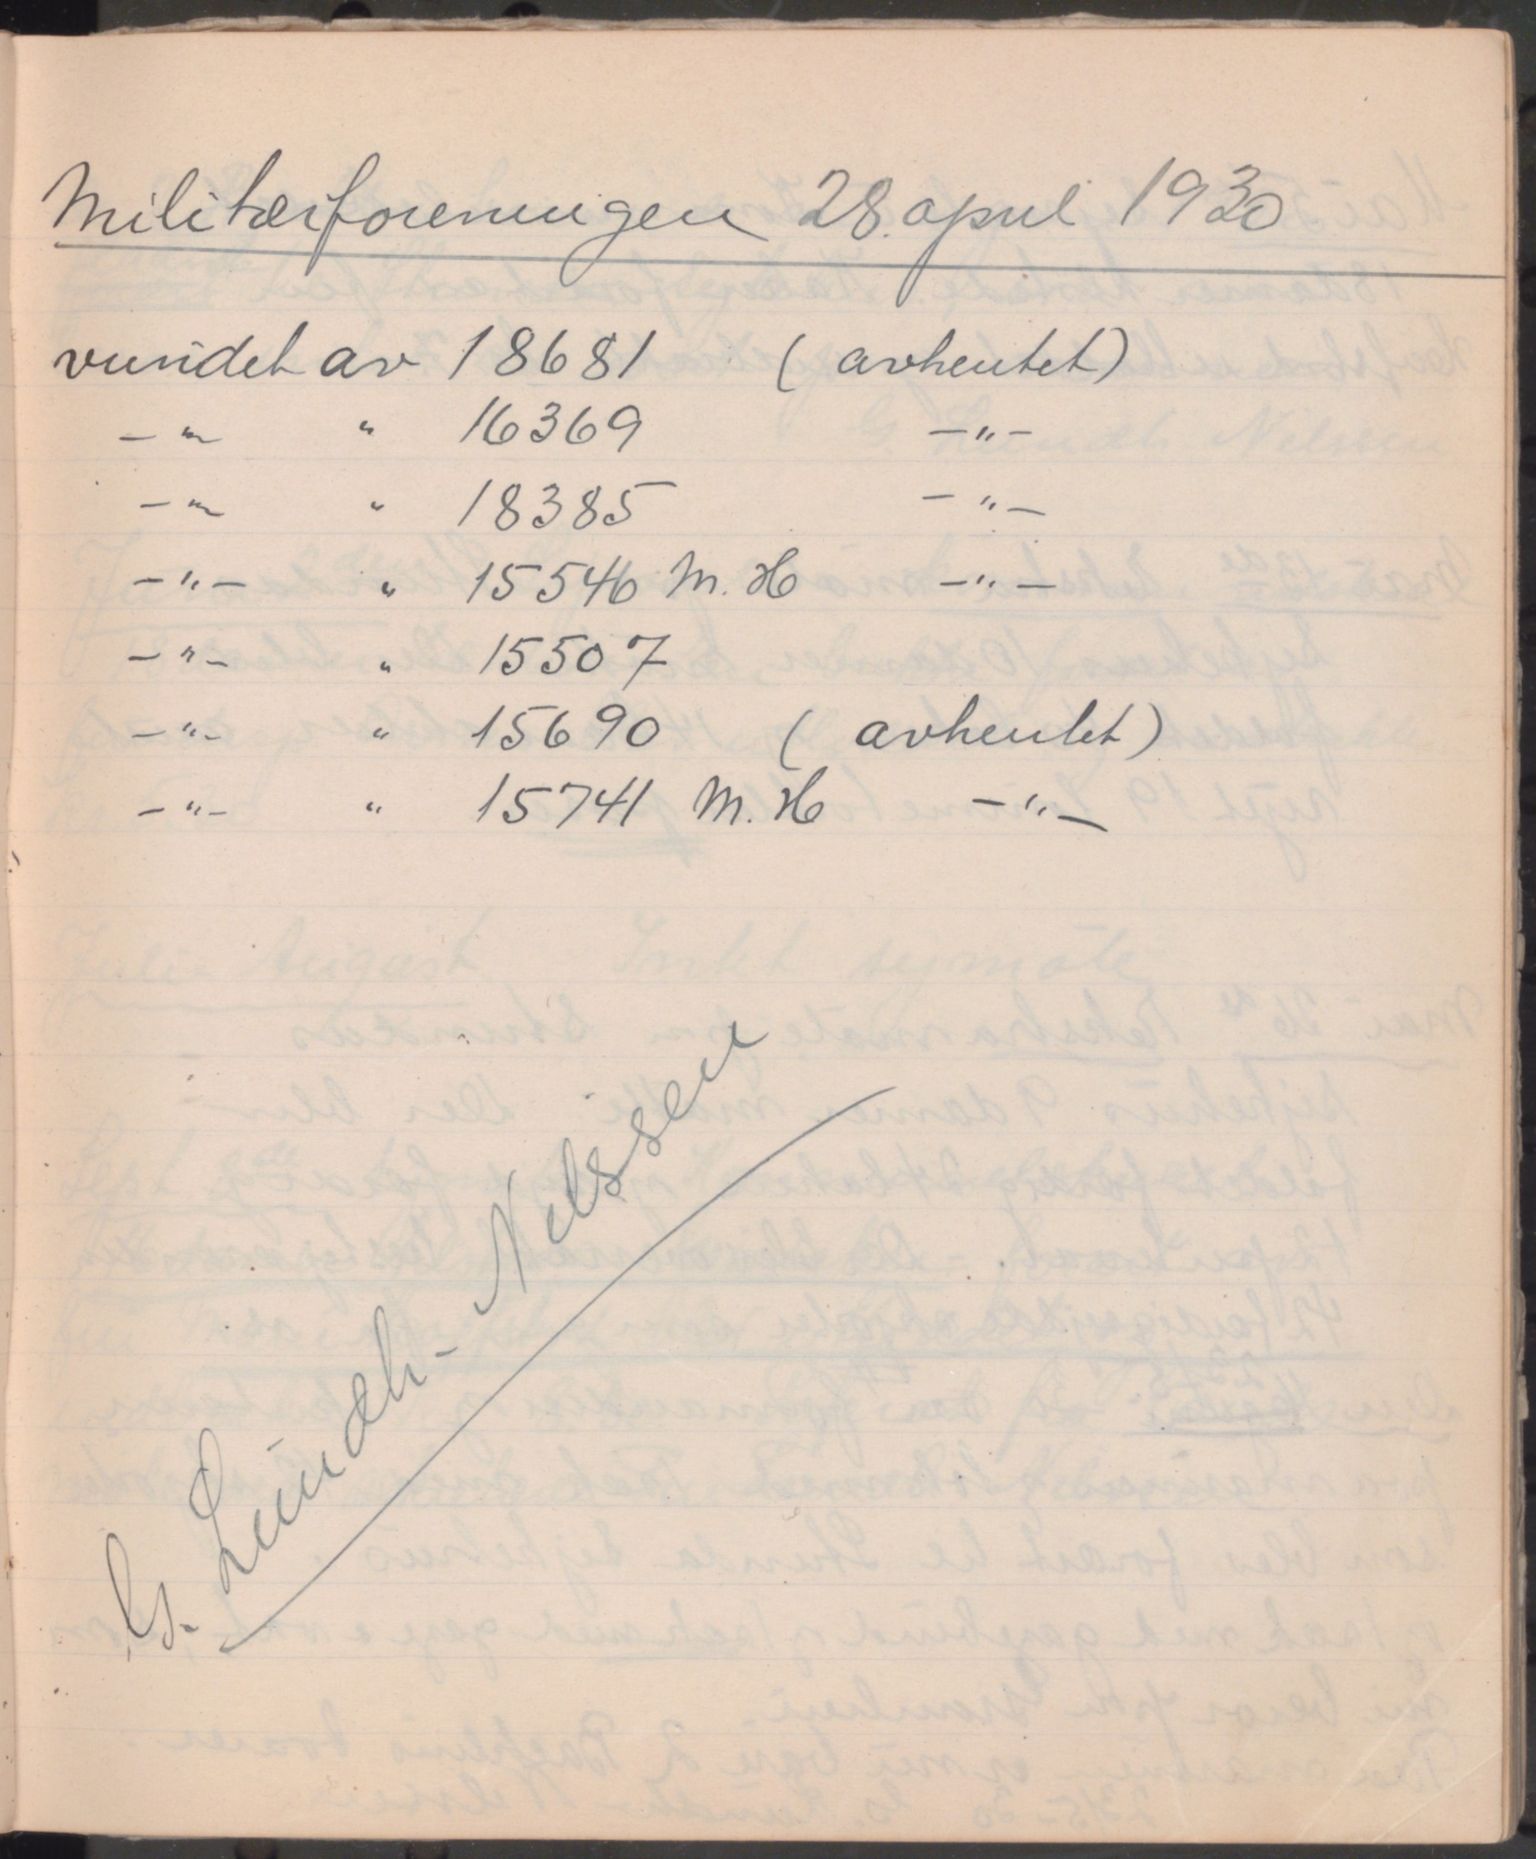 Militærforeningen 28. april 1930
vundet av 18681 (avhentet)
-"- " 16369 -"-
-"- " 18385 -"-
-"- " 15546 M. H -"-
-"- " 15507
-"- " 15690 (avhentet)
-"- " 15741 M. H -"-
G. Lundh-Nilssen